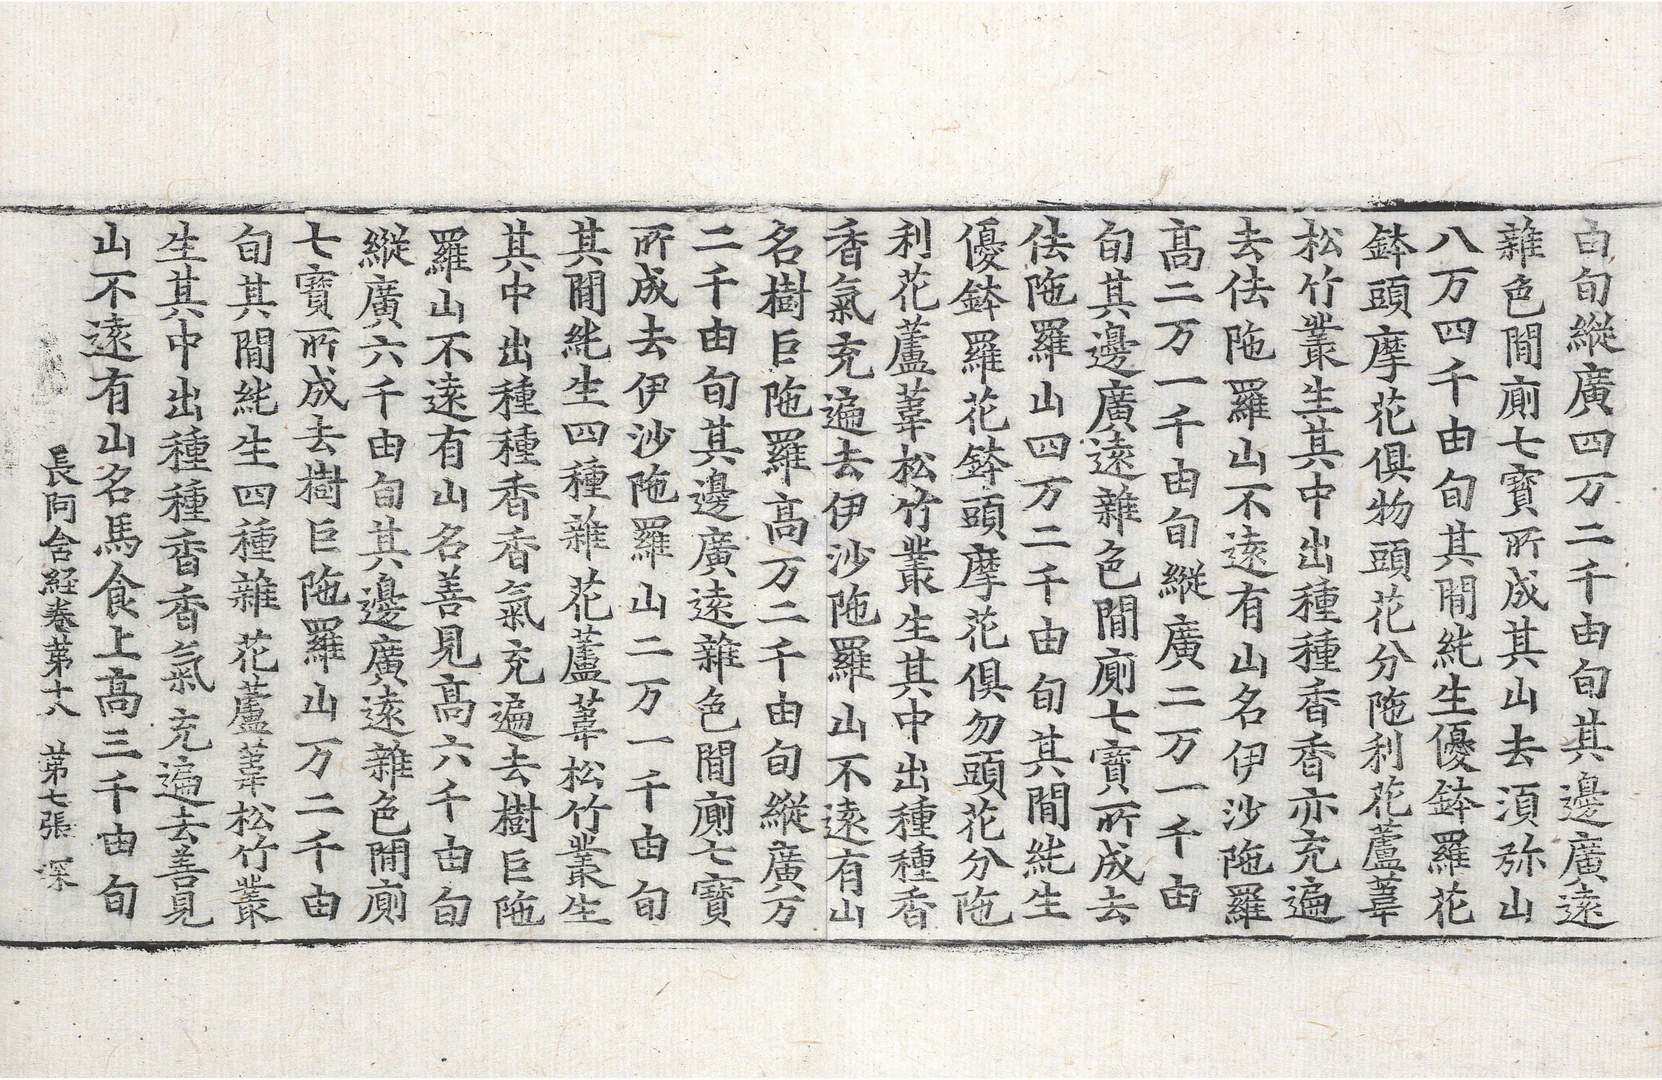 由旬縱廣四万二千由旬其邊廣遠
雜色閒廁七寶所成其山去湏弥山
八万四千由旬其閒純生優鉢羅花
鉢頭摩花俱物頭花分陁利花蘆葦
松竹叢生其中出種種香香亦充遍
去佉陁羅山不遠有山名伊沙陁羅
高二万一千由旬縱廣二万一千由
旬其邊廣遠雜色閒廁七寶所成去
佉陁羅山四万二千由旬其閒純生
優鉢羅花鉢頭摩花俱勿頭花分陁
利花蘆葦松竹叢生其中出種種香
香氣充遍去伊沙陁羅山不遠有山
名樹巨陁羅高万二千由旬縱廣万
二千由旬其邊廣遠雜色閒廁七寶
所成去伊沙陁羅山二万一千由旬
其閒純生四種雜花蘆葦松竹叢生
其中出種種香香氣充遍去樹巨陁
羅山不遠有山名善見高六千由旬
縱廣六千由旬其邊廣遠雜色閒廁
七寶所成去樹巨陁羅山万二千由
旬其閒純生四種雜花蘆葦松竹叢
生其中出種種香香氣充遍去善見
山不遠有山名馬食上高三千由旬
長阿含経卷第十八 第七張 深